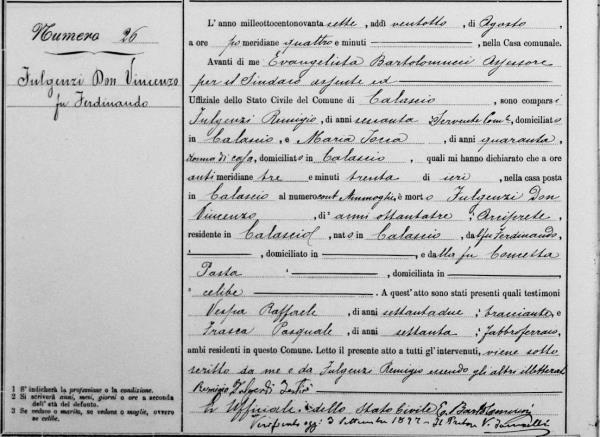 Numero 26
Fulgenzi Don Vincenzo
fu Ferdinando
L'anno milleottocentonovanta sette, addì ventotto, di Agosto,
a ore pomeridiane quattro e minuti , nella Casa comunale.
Avanti di me Evangelista Bartolomucci Assessore
per il Sindaco assente ed
Uffiziale dello Stato Civile del Comune di Calascio, sono comparsi
Fulgenzi Remigio, di anni sessanta, Servente Com.le, domiciliato
in Calascio, e Maria Tocca, di anni quaranta,
donna di casa, domiciliato in Calascio, quali mi hanno dichiarato che a ore
antimeridiane tre e minuti trenta di ieri, nella casa posta
in Calascio al numero, è morto Fulgenzi Don
Vincenzo, di anni ottantatre, Arciprete,
residente in Calascio, nato in Calascio, da fu Ferdinando,
, domiciliato in , e dalla fu Concetta
Pasta , domiciliata in
celibe . A quest'atto sono stati presenti quali testimoni
Vespa Raffaele, di anni settantadue, bracciante, e
Frasca Pasquale, di anni settanta, Fabbroferraio,
ambi residenti in questo Comune. Letto il presente atto a tutti gl'intervenuti, viene sotto
scritto da me e da Fulgenzi Remigio essendo gli altri illetterati
Remigio Fulgenzi
L'Uffiziale dello Stato Civile E. Bartolomucci
Verificato oggi 3 Settembre 1897 - Il Pretore V.
1 S'indicherà la professione o la condizione.
2 Si scriverà anni, mesi, giorni o ore a seconda
dell'età del defunto.
3 Se vedovo o marito, se vedova o moglie, ovvero
se celibe.